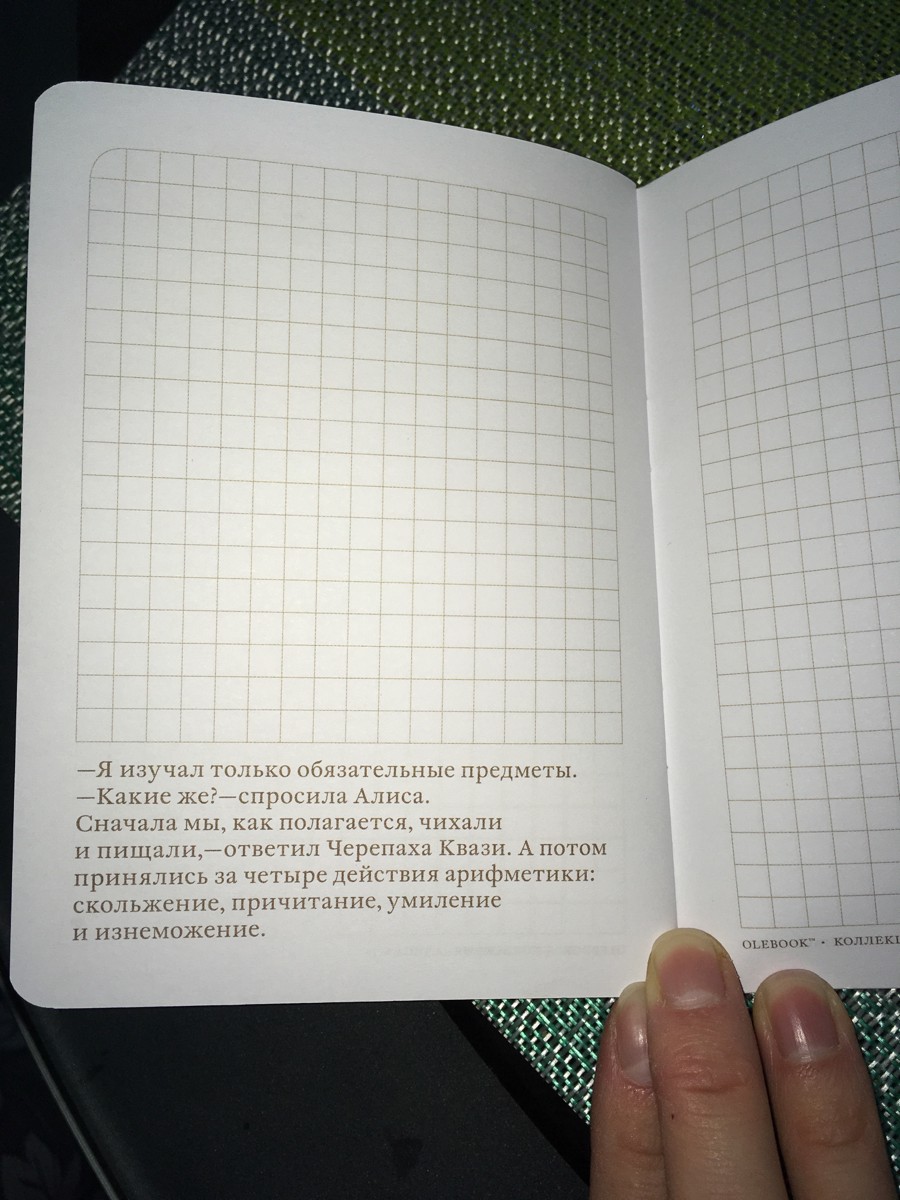 —Я изучал только обязательные предметы.
—Какие же?—спросила Алиса.
Сначала мы, как полагается, чихали
и пищали,—ответил Черепаха Квази. А потом
принялись за четыре действия арифметики:
скольжение, причитание, умиление
и изнеможение.
OLEBOOK™ •